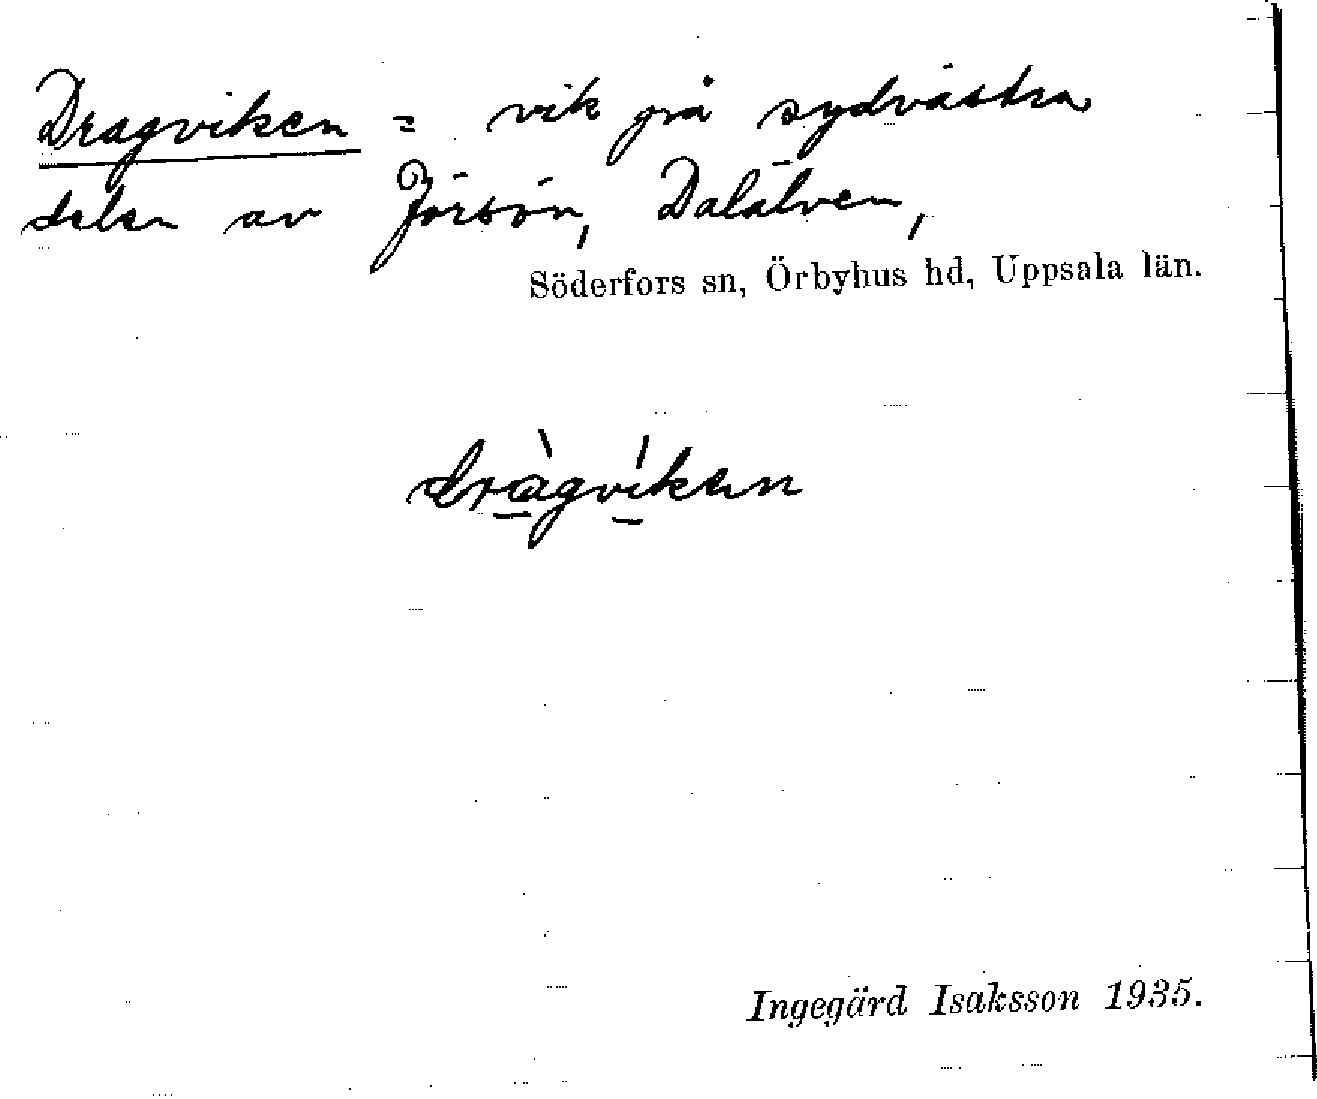 Dragviken = vik på sydvästra
delen av Jörsön, Dalälven,
Söderfors sn, Örbyhus hd, Uppsala län.
dràgvíken
Ingegärd Isaksson 1935.